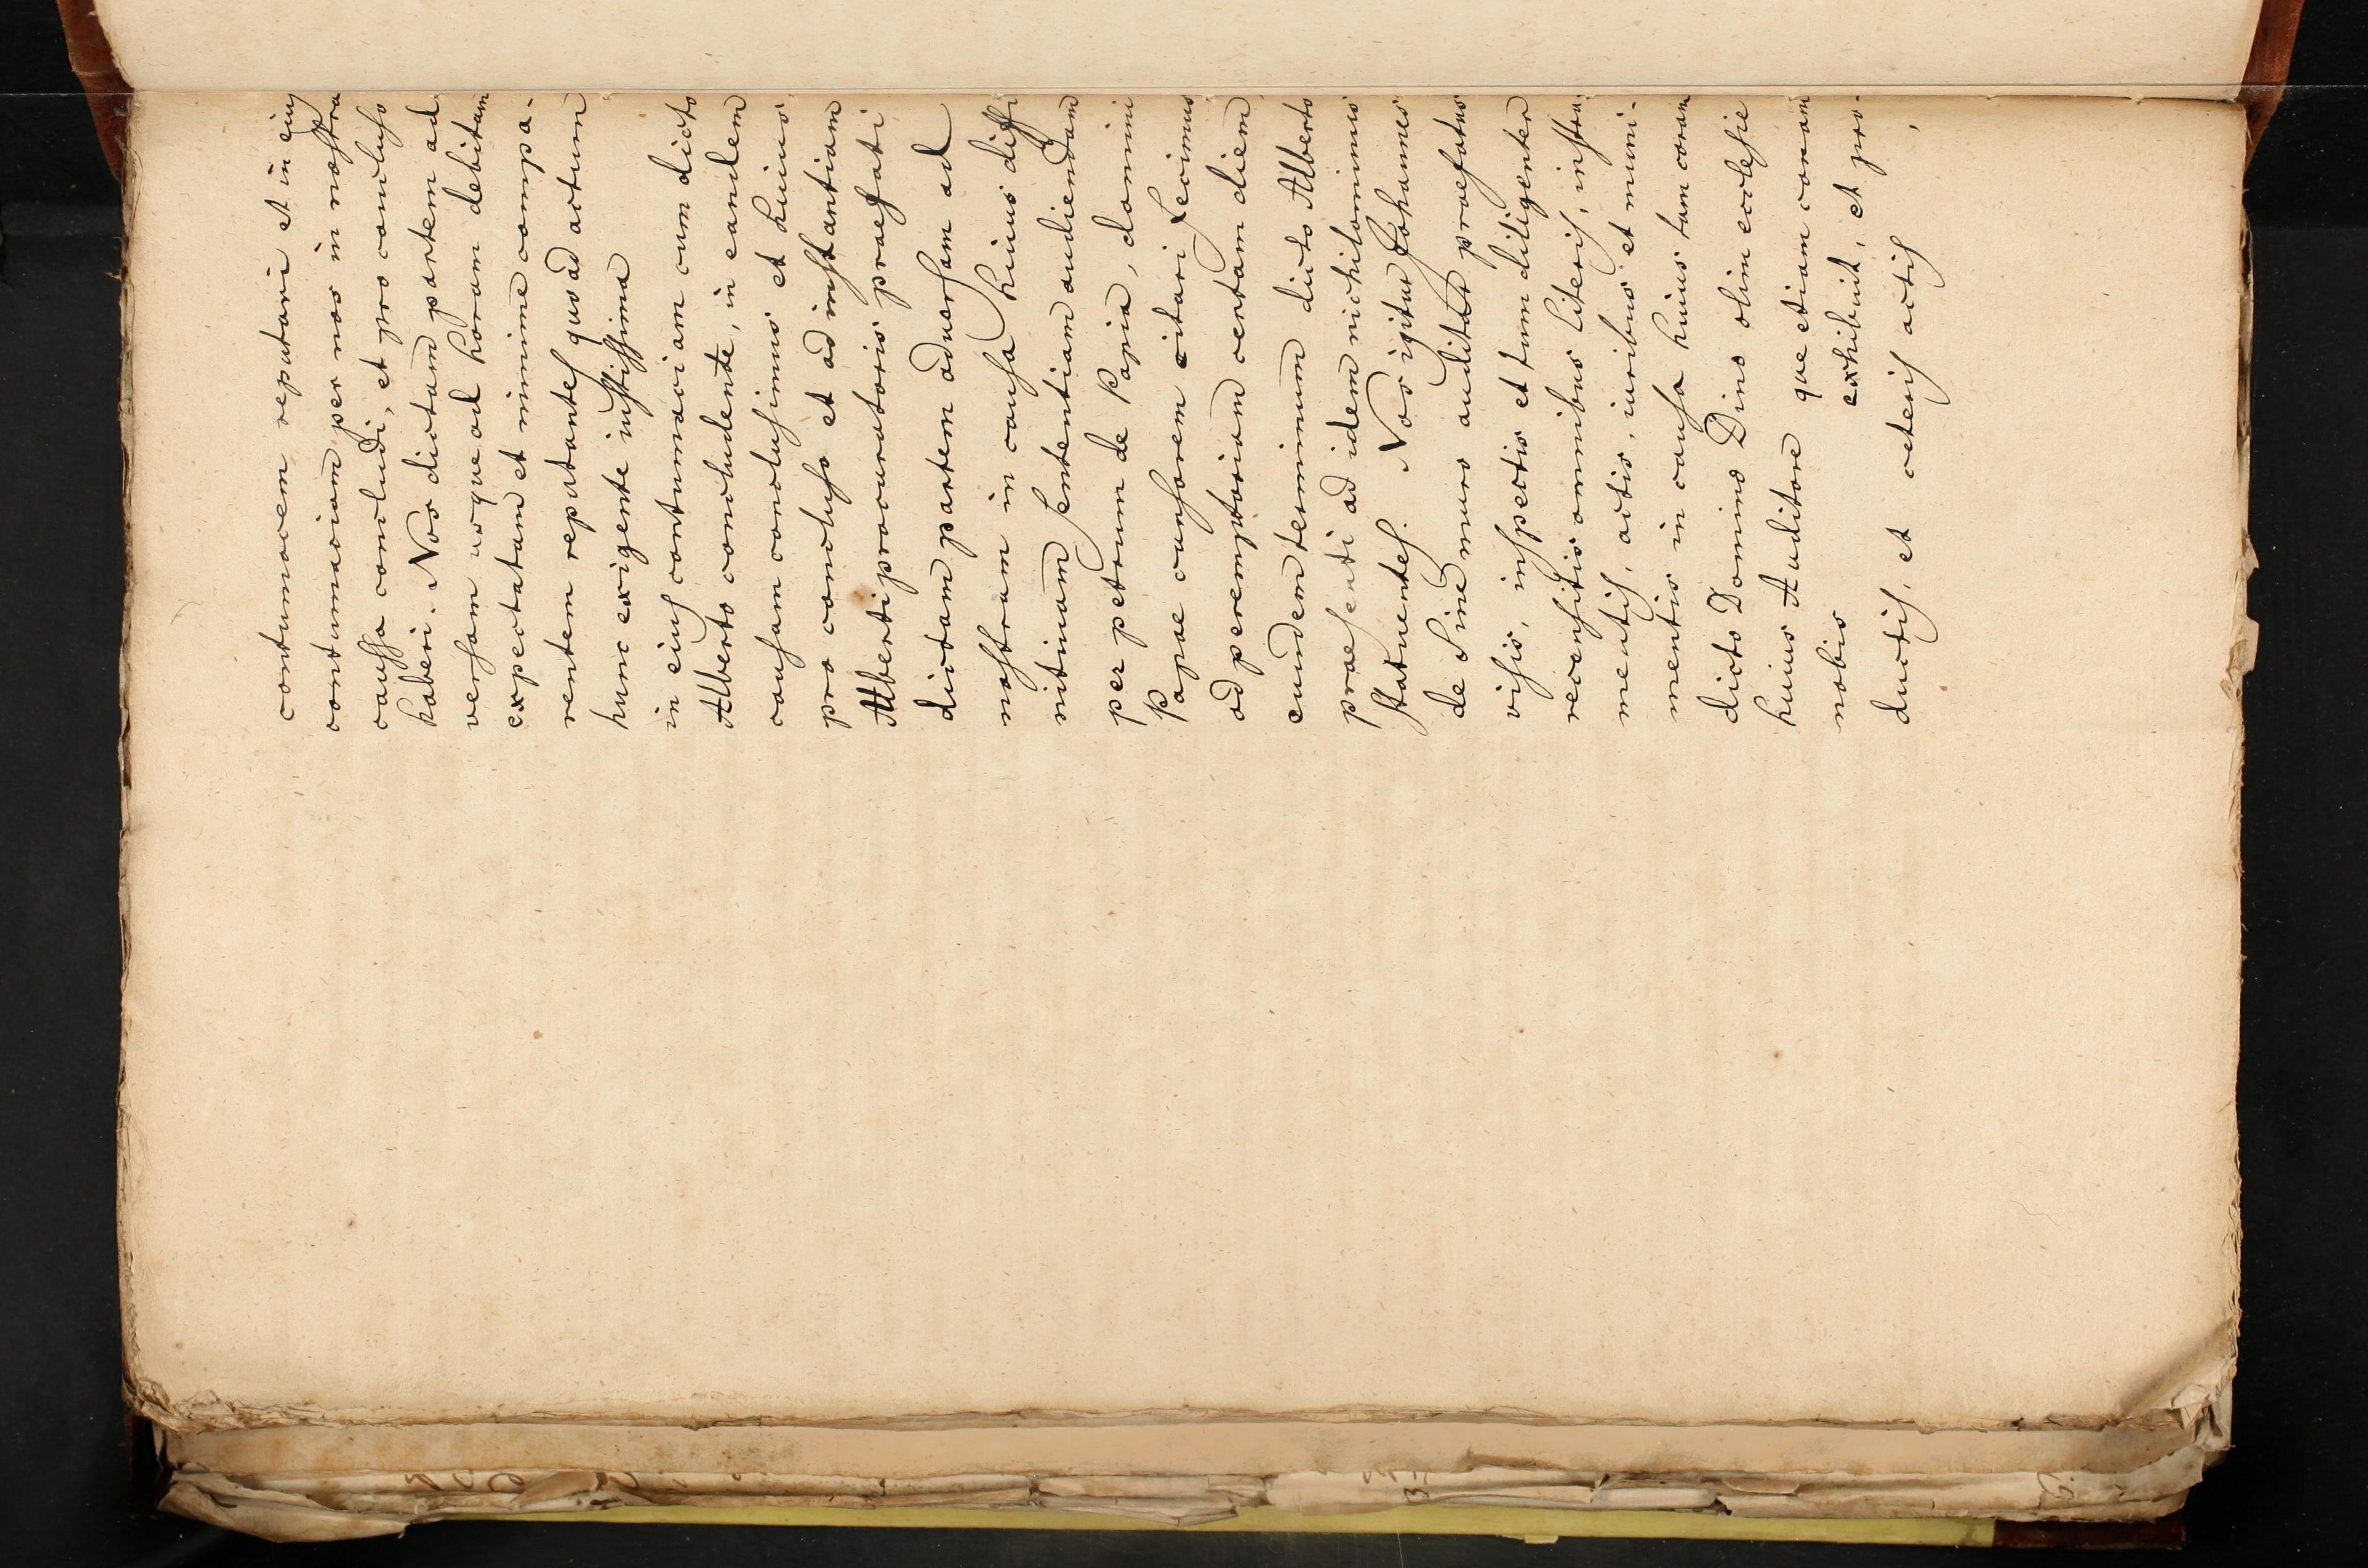 contumacem reputari et in eius
contumaciam per nos in nostra
caussa concludi, et pro concluso
haberi. Nos dictam partem ad
versam usque ad horam debitam
expectatam et minime compa-
rentem reputantes quo ad actum
hunc exigente iustissima
in eius contumaciam cum dicto
Alberto concludente, in eandem
causam conclusimus et huius
pro concluso et ad instantiam
Alberti procuratoris praefati
dictam partem aduersam ad
nostram in causa huius diffi
nitiuam sententiam audiendam
per petrum de Papia, domini
Papae cursorem citari fecimus
ad peremptoriam certam diem
eundem terminum dicto Alberto
praesenti ad idem nichilominus
statuentes. Nos igitur Johannes
de Sine muro auditor praefatus
visis, inspectis et tum diligenter
recensitis omnibus literis, instru
mentis, actis, iuribus et muni-
mentis in causa huius tam coram
dicto Domino Dino olim ecclesie
huius Auditore que etiam coram
nobis exhibuit, et pro-
ductis, et ceteris actis,